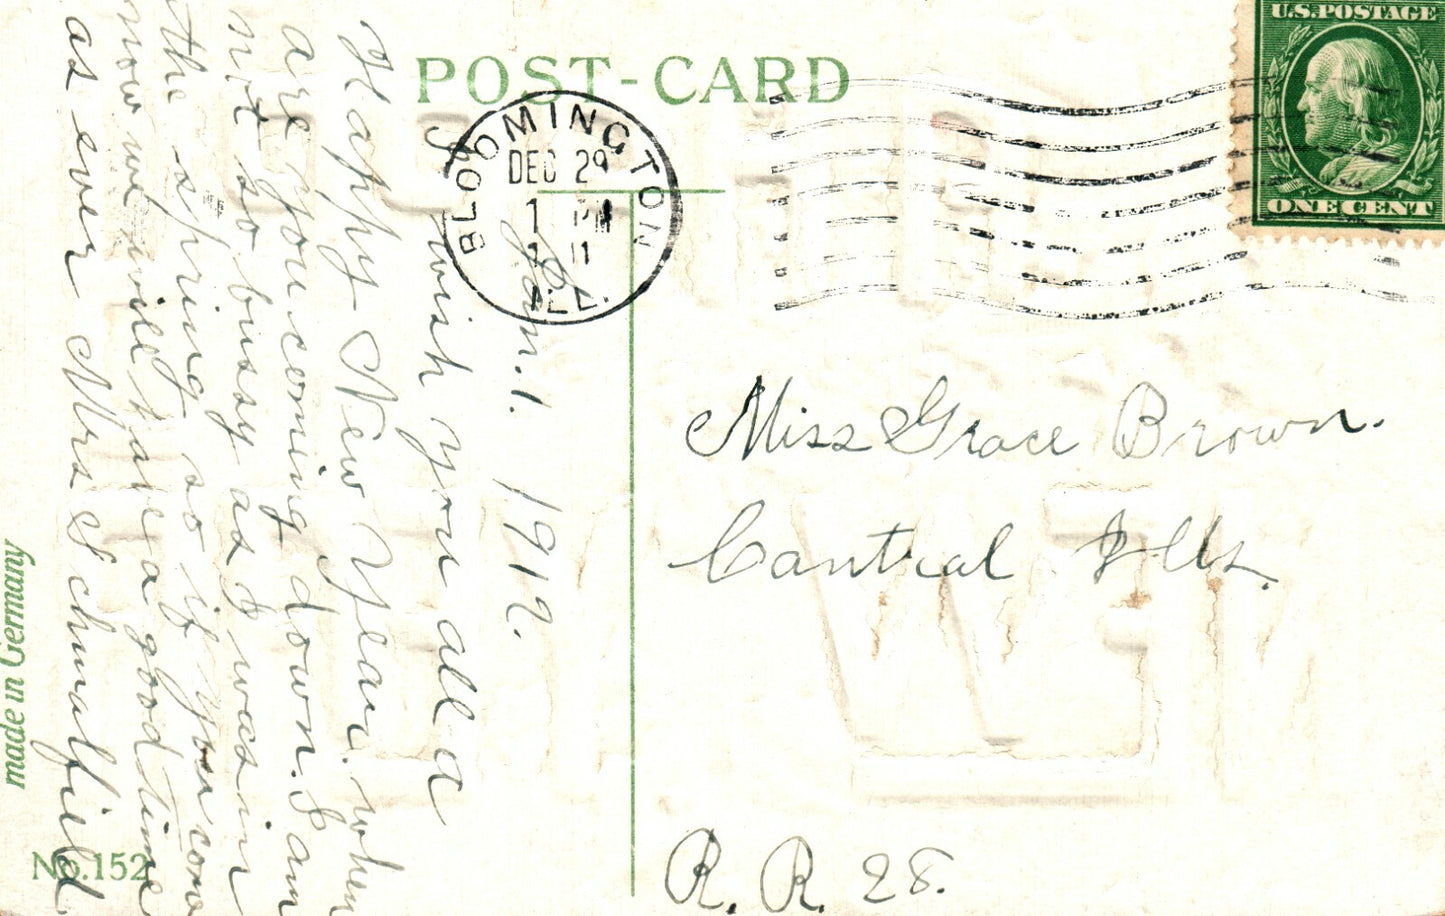 POST-CARD
U.S.POSTAGE
ONE CENT
BLOOMINGTON
DEC 29
1 PM
11
ILL.
Jan. 1. 1912.
I wish you all a
Happy New Year. when
are you coming down. I am
not so busy as I was in
the spring so if you come
now we will have a good time
as ever Mrs Schmalfield
Miss Grace Brown.
Cantral Ills.
R. R. 28.
made in Germany
No. 152